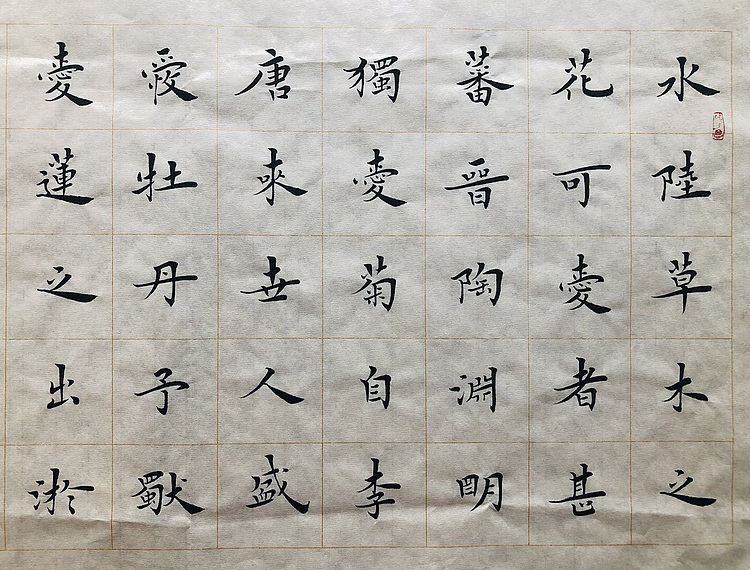 水陸草木之
花可愛者甚
蕃晉陶淵明
獨愛菊自李
唐來世人盛
愛牡丹予獨
愛蓮之出淤